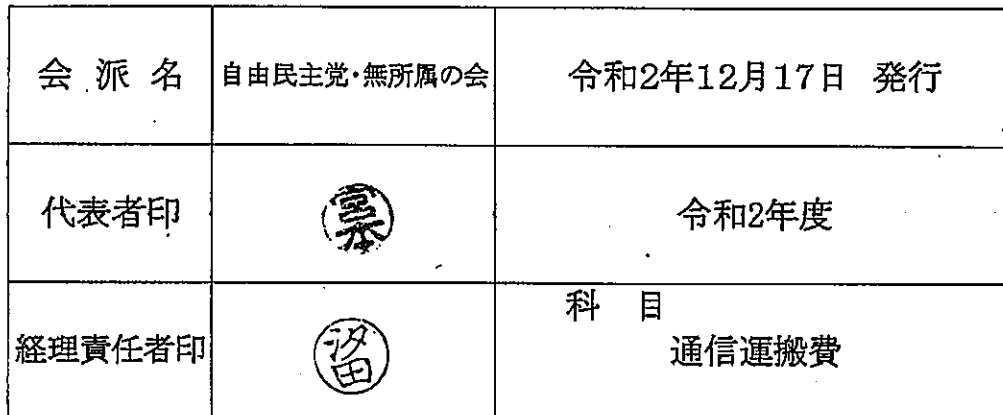 会派名 自由民主党・無所属の会 令和2年12月17日 発行
代表者印 宮本 令和2年度
科目
経理責任者印 沼田 通信運搬費